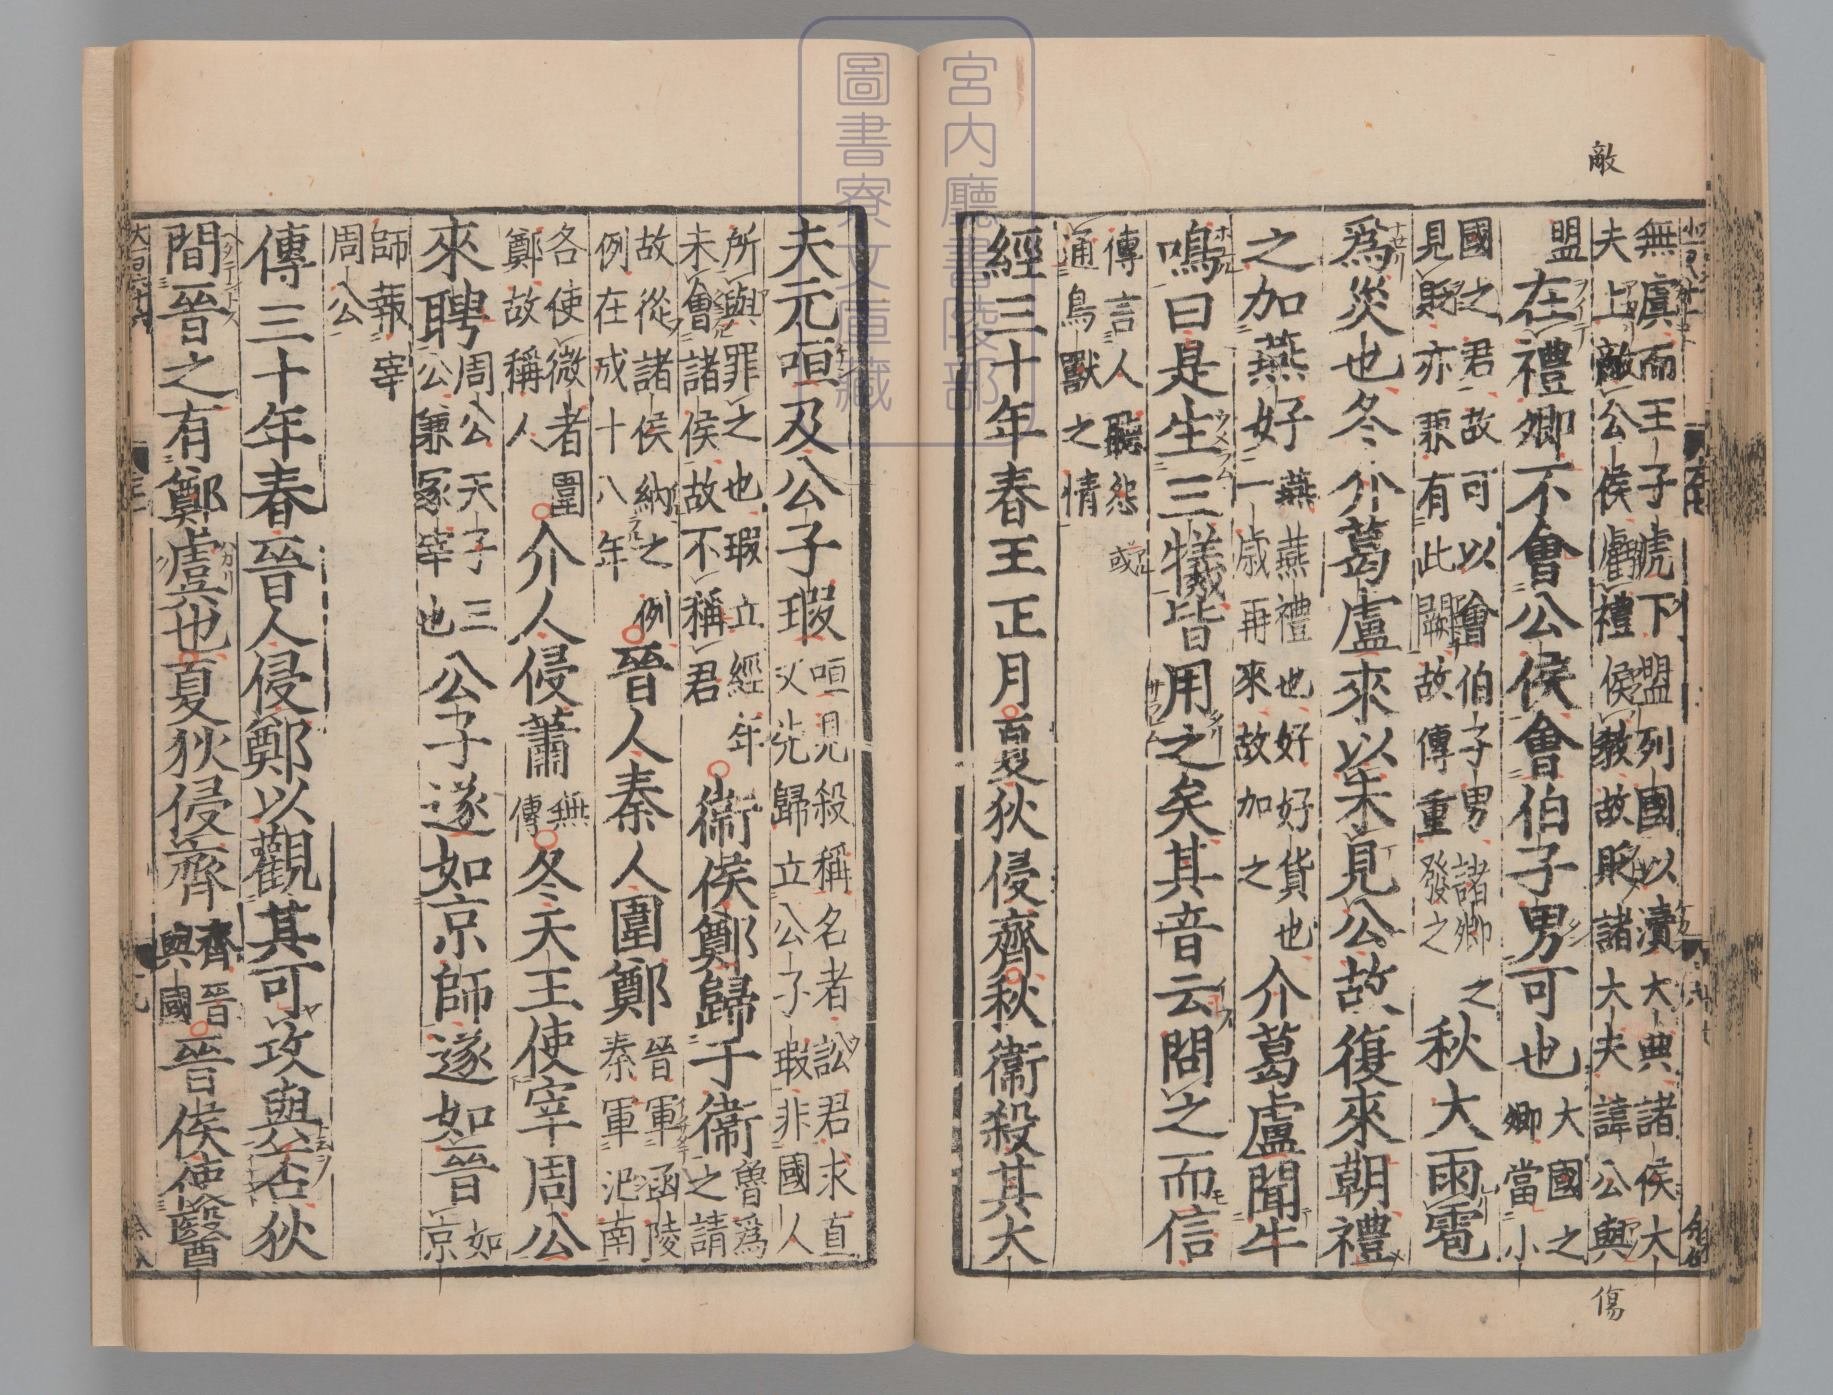 敵
無虞而王子虎下盟列國以瀆大典諸侯大
夫上敵公侯虧禮侯教故貶諸大夫諱公與
盟
在禮卿不會公侯會伯子男可也
大國之
卿當小
國之君故可以會伯子男諸卿之
見貶亦兼有此闕故傳重發之
秋大雨雹
為災也冬介葛盧來以未見公故復來朝禮
之加燕好
燕燕禮也好好貨也
一歲再來故加之
介葛盧聞牛
鳴曰是生三犧皆用之矣其音云問之而信
傳言人聽怨
或
通鳥獸之情
經三十年春王正月夏狄侵齊秋衞殺其大
傷
宮内廳書陵部
圖書寮文庫藏
夫元咺及公子瑕
咺見殺稱名者訟君求直
又先歸立公子瑕非國人
所與罪之也瑕立經年
未會諸侯故不稱君
衞侯鄭歸于衞
魯為
之請
故從諸侯納之例
例在成十八年
晉人秦人圍鄭
晉軍函陵
秦軍氾南
各使微者圍
鄭故稱人
介人侵蕭
無
傳
冬天王使宰周公
來聘
周公天子三
公兼冢宰也
公子遂如京師遂如晉
如
京
師報宰
周公
傳三十年春晉人侵鄭以觀其可攻與否狄
間晉之有鄭虞也夏狄侵齊
齊晉
與國
晉侯使醫